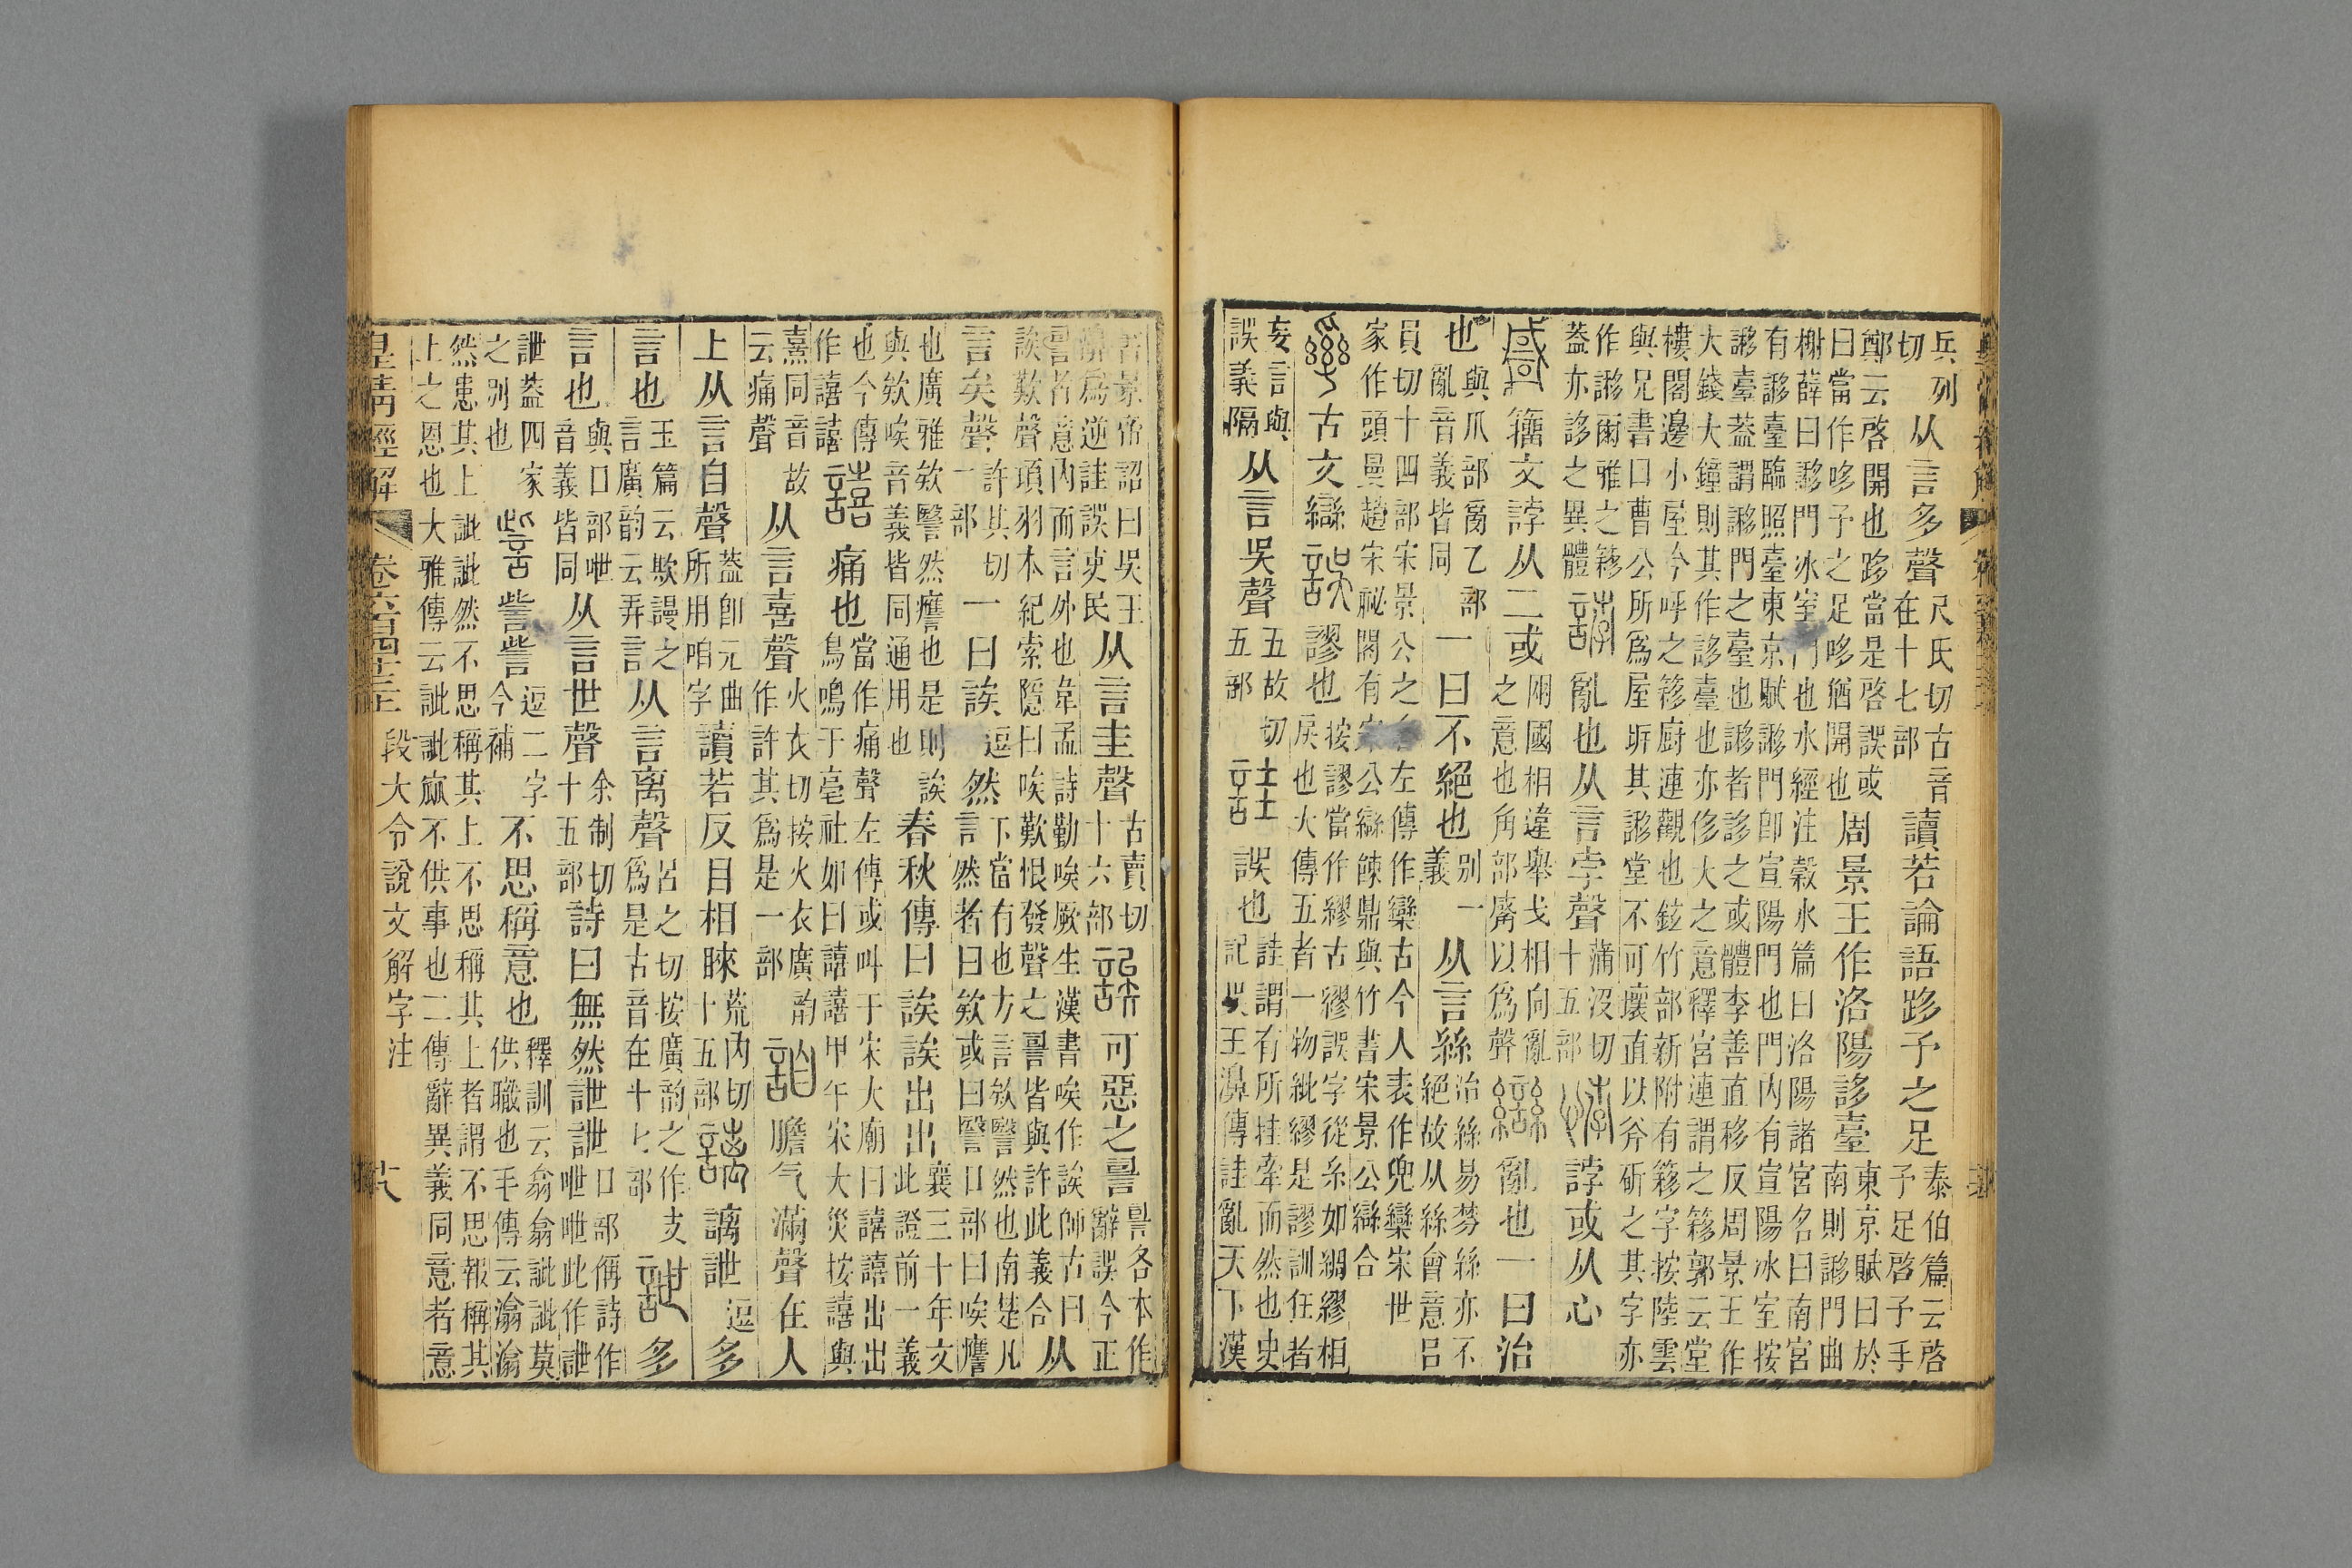 兵列切从言多聲尺氏切古音在十七部讀若論語跢予之足泰伯篇云啓予足啓予手
鄭云啓開也跢當是啓誤或曰當作哆予之足哆猶開也周景王作洛陽誃臺東京賦曰於南則誃門曲
榭薛曰誃門冰室門也水經注榖水篇曰洛陽諸宮名曰南宮有誃臺臨照臺東京賦誃門卽宣陽門也門內有宣陽冰室按
誃臺葢謂誃門之臺也誃者誃之或體李善直移反周景王作大錢大鐘則其作誃臺也亦侈大之意釋宮連謂之簃郭云堂
樓閣邊小屋今呼之簃廚連觀也鉉竹部新附有簃字按陸雲與兄書曰曹公所爲屋坼其誃堂不可壞直以斧斫之其字亦
作誃爾雅之簃葢亦誃之異體誖亂也从言孛聲蒲沒切十五部悖誖或从心
籒文誖从二或㒳國相違舉戈相向亂之意也角部觱以爲聲䜌亂也一曰治
也與爪部𤔔乙部亂音義皆同一曰不絕也別一義从言絲治絲易棼絲亦不絕故从絲會意呂
員切十四部宋景公之名左傳作欒古今人表作兜欒宋世家作頭曼趙宋祕閣有宋公䜌餗鼎與竹書宋景公䜌合
古文䜌誤謬也按謬當作繆古繆誤字從糸如綢繆相戾也大傳五者一物紕繆是謬訓狂者
妄言與誤義隔从言吳聲五故切五部詿誤也詿謂有所挂牽而然也史記吳王濞傳詿亂天下漢
書景帝詔曰吳王濞爲逆詿誤吏民从言圭聲古賣切十六部誒可惡之䛐䛐各本作辭誤今正
䛐者意內而言外也韋孟詩勤唉厥生漢書唉作誒師古曰誒歎聲項羽本紀索隱曰唉歎恨發聲之䛐皆與許此義合从
言矣聲許其切一部一曰誒逗然下當有也方言欸譍然也南楚凡言然者曰欸或曰譍口部曰唉譍
也廣雅欸譍然譍也是則誒與欸唉音義皆同通用也春秋傳曰誒誒出出襄三十年文此證前一義
也今傳作譆譆譆痛也當作痛聲左傳或叫于宋大廟曰譆譆出出鳥鳴于亳社如曰譆譆甲午宋大災按譆與
熹同音故云痛聲从言喜聲火衣切按火衣廣韵作許其爲是一部詯膽气滿聲在人
上从言自聲葢卽元曲所用咱字讀若反目相睞荒內切十五部謧謧詍逗多
言也玉篇云欺謾之言廣韵云弄言从言离聲呂之切按廣韵之作支爲是古音在十七部詍多
言也與口部呭音義皆同从言世聲余制切十五部詩曰無然詍詍口部偁詩作呭呭此作詍
詍葢四家之別也訾訾訾逗二字今補不思稱意也釋訓云翕翕訿訿莫供職也毛傳云潝潝
然患其上訿訿然不思稱其上不思稱其上者謂不思報稱其上之恩也大雅傳云訿訿窳不供事也二傳辭異義同意者意
皇清經解 卷六百四十三 段大令說文解字注 十八